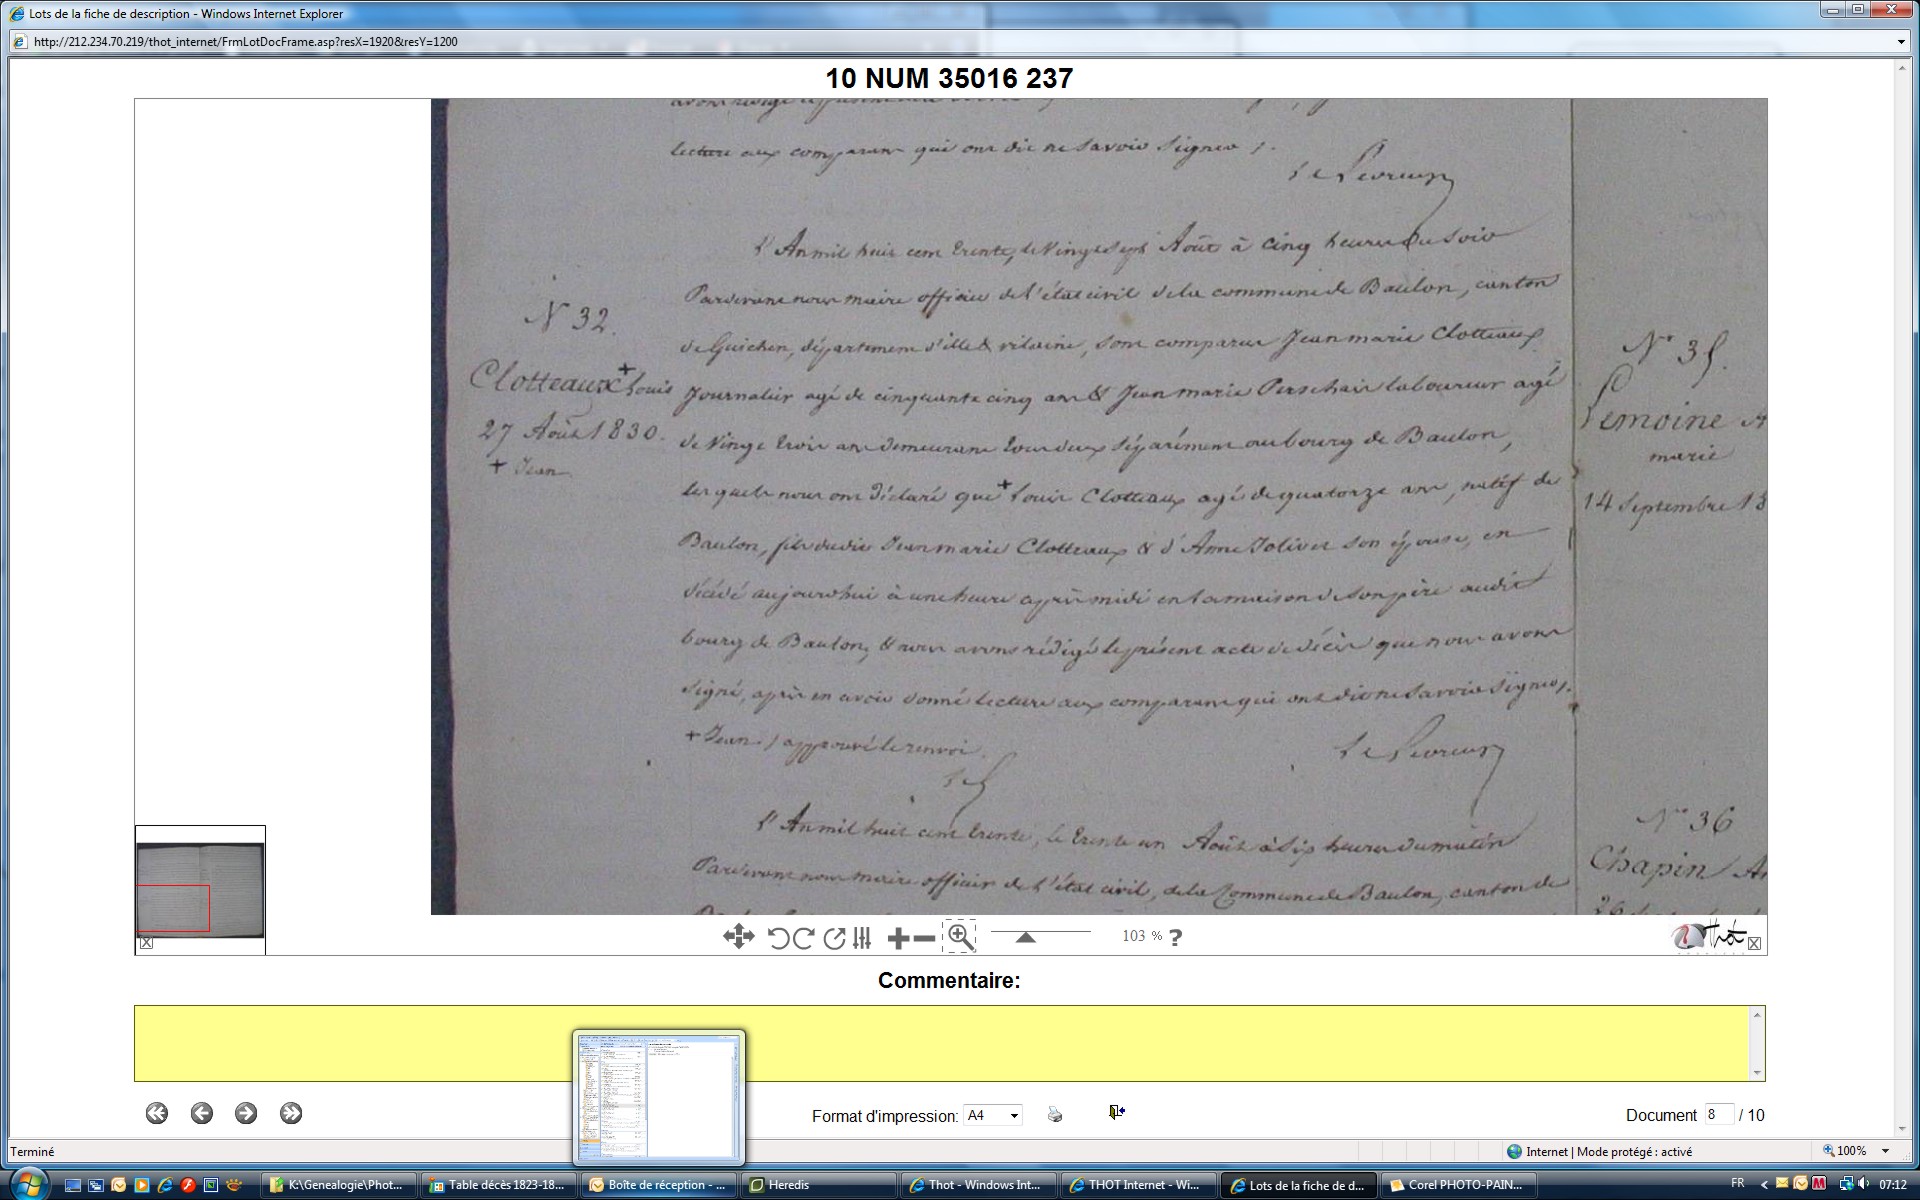 Lots de la fiche de description - Windows Internet Explorer
http://212.234.70.219/thot_internet/FrmLotDocFrame.asp?resX=1920&resY=1200
10 NUM 35016 237
lecture aux comparans qui ont dit ne savoir signer ;.
L'An mil huit cent trente, le vingt sept Août à cinq heures du soir
Pardevant nous maire officier de l'état civil de la commune de Baulon, canton
N 32.
de Guichen, département d'ille & vilaine, sont comparus Jean marie Clotteaux
Clotteaux + Louis
journalier agé de cinquante cinq ans & Jean marie Perschais laboureur agé
27 Août 1830.
de vingt trois ans demeurant tous deux séparément au bourg de Baulon,
+ Jean
les quels nous ont déclaré que + Louis Clotteaux agé de quatorze ans, natif de
Baulon, fils dudit Jean marie Clotteaux & d'Anne Jolivet son épouse, en
décédé aujourd'hui à une heure après midi en la maison de son père audit
bourg de Baulon, & nous avons rédigé le présent acte de décès que nous avons
signé, après en avoir donné lecture aux comparans qui ont dit ne savoir signer,.
+ Jean / approuvé le renvoi
L'An mil huit cent trente, le trente un Août à six heures du matin
Pardevant nous maire officier de l'état civil, de la Commune de Baulon, canton de
No 35.
Lemoine
marie
14 Septembre 18
No 36
Chapin
103 % ?
Thot
Commentaire:
Format d'impression: A4
Document 8 / 10
Terminé
Internet | Mode protégé : activé
100%
K:\Genealogie\Phot...
Table décès 1823-18...
Boîte de réception - ...
Heredis
Thot - Windows Int...
THOT Internet - Wi...
Lots de la fiche de d...
Corel PHOTO-PAIN...
FR
07:12